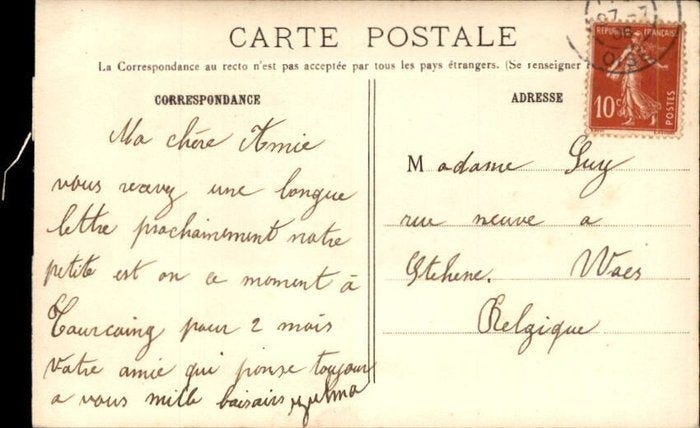 CARTE POSTALE
La Correspondance au recto n'est pas acceptée par tous les pays étrangers. (Se renseigner
CORRESPONDANCE
Ma chère Amie
vous recevez une longue
lettre prochainement notre
petite est en ce moment à
Tourcoing pour 2 mois
Votre amie qui pense toujour
a vous mille baisairs
ADRESSE
Madame Guy
rue neuve a
Stekene. Waes
Belgique
REPUBLIQUE FRANÇAISE
10c
POSTES
OISE